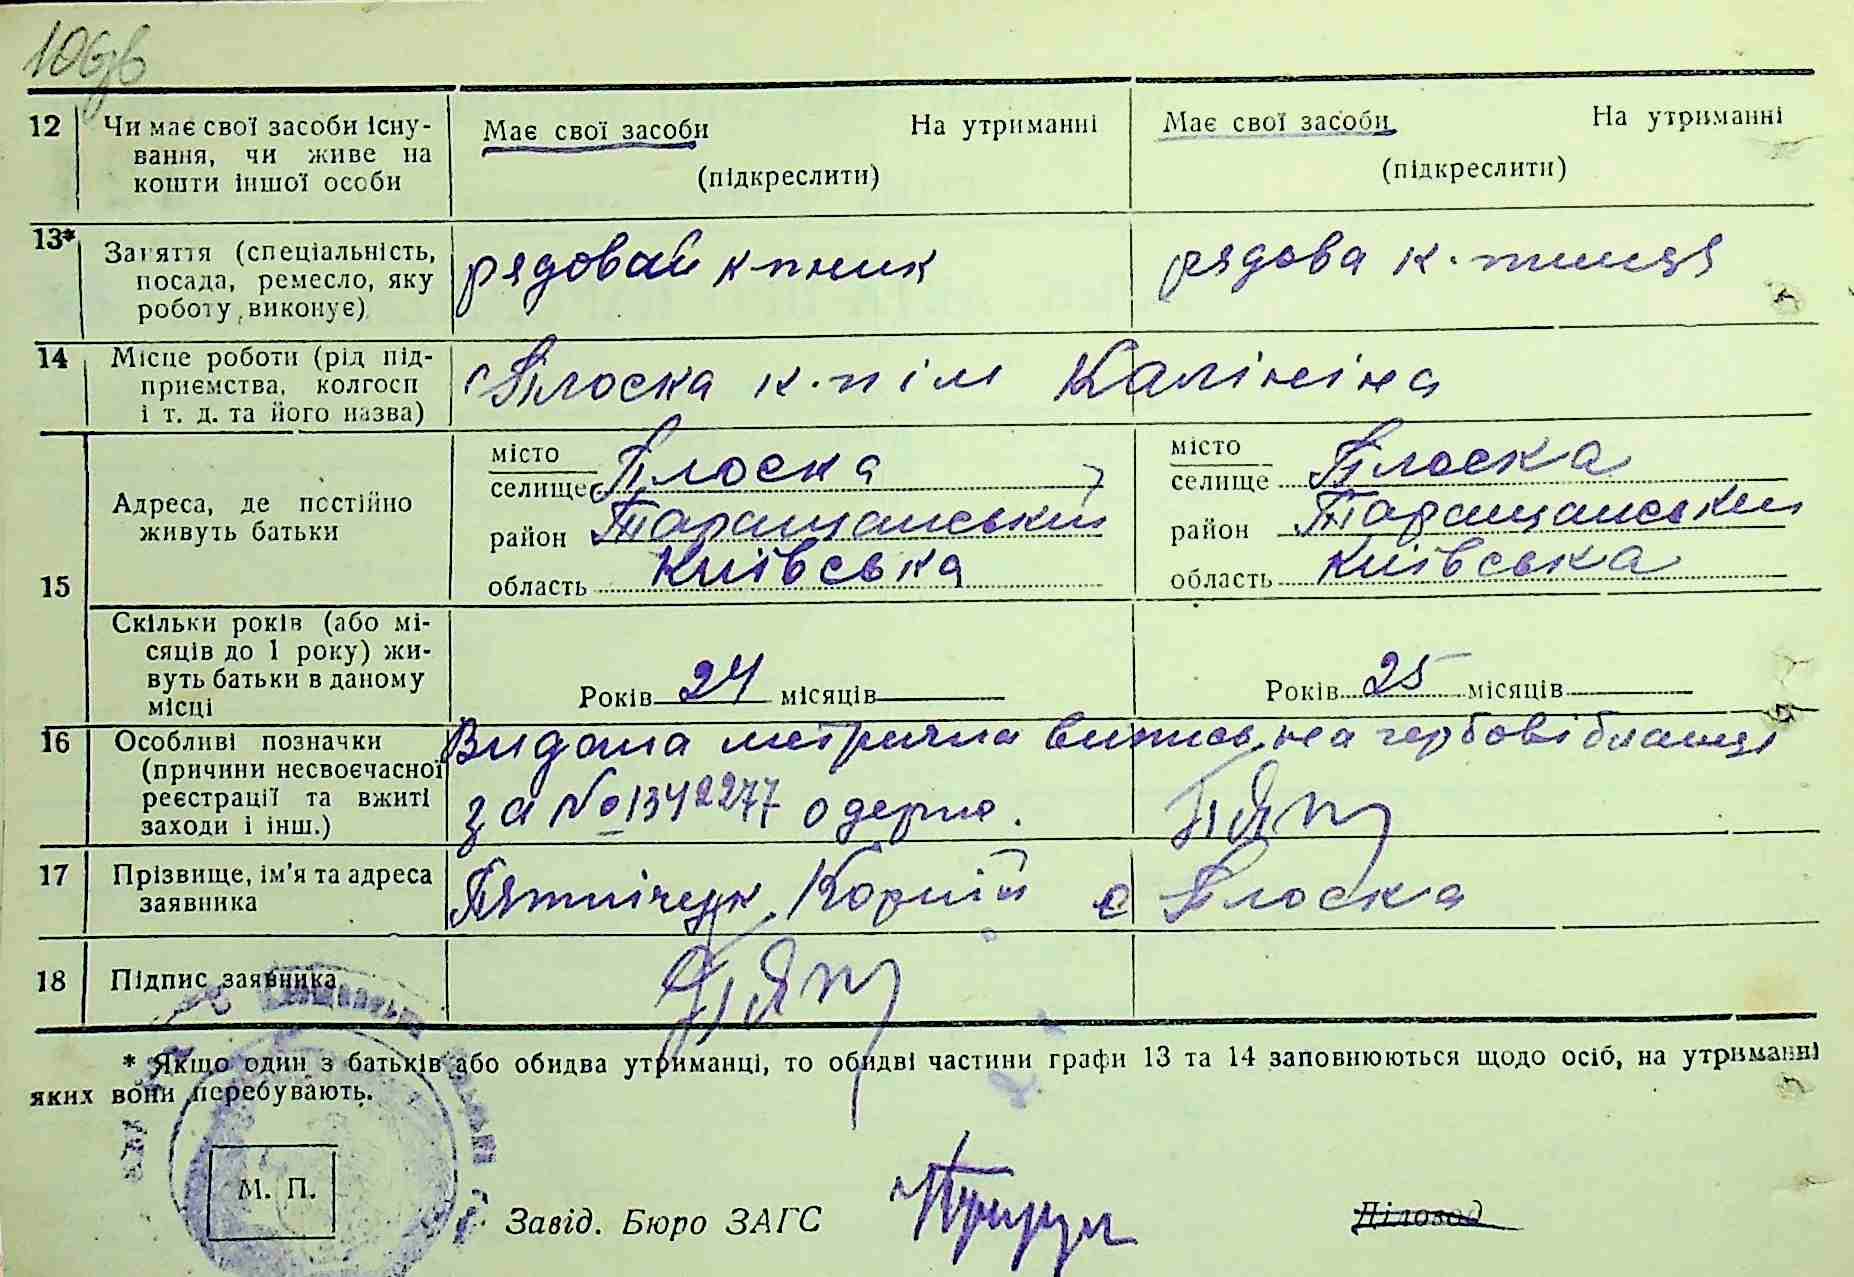 106зв
12 Чи має свої засоби існу-
вання, чи живе на
кошти іншої особи
Має свої засоби На утриманні
(підкреслити)
Має свої засоби На утриманні
(підкреслити)
13* Заняття (спеціальність,
посада, ремесло, яку
роботу виконує)
рядовай к-пник
рядова к-пниця
14 Місце роботи (рід під-
приємства, колгосп
і т. д. та його назва)
с Плоска к-п ім Калініна
15 Адреса, де постійно
живуть батьки
місто
селище с Плоска
район Таращанський
область Київська
місто
селище Плоска
район Таращанський
область Київська
Скільки років (або мі-
сяців до 1 року) жи-
вуть батьки в даному
місці
Років 24 місяців
Років 25 місяців
16 Особливі позначки
(причини несвоєчасної
реєстрації та вжиті
заходи і інш.)
Видана метрична випись на гербові бланці
за № 1342277 одерж. Пят
17 Прізвище, ім'я та адреса
заявника
Пятнічук Корній с Плоска
18 Підпис заявника
Пят
* Якщо один з батьків або обидва утриманці, то обидві частини графи 13 та 14 заповнюються щодо осіб, на утриманні
яких вони перебувають.
М. П.
Завід. Бюро ЗАГС
Діловод